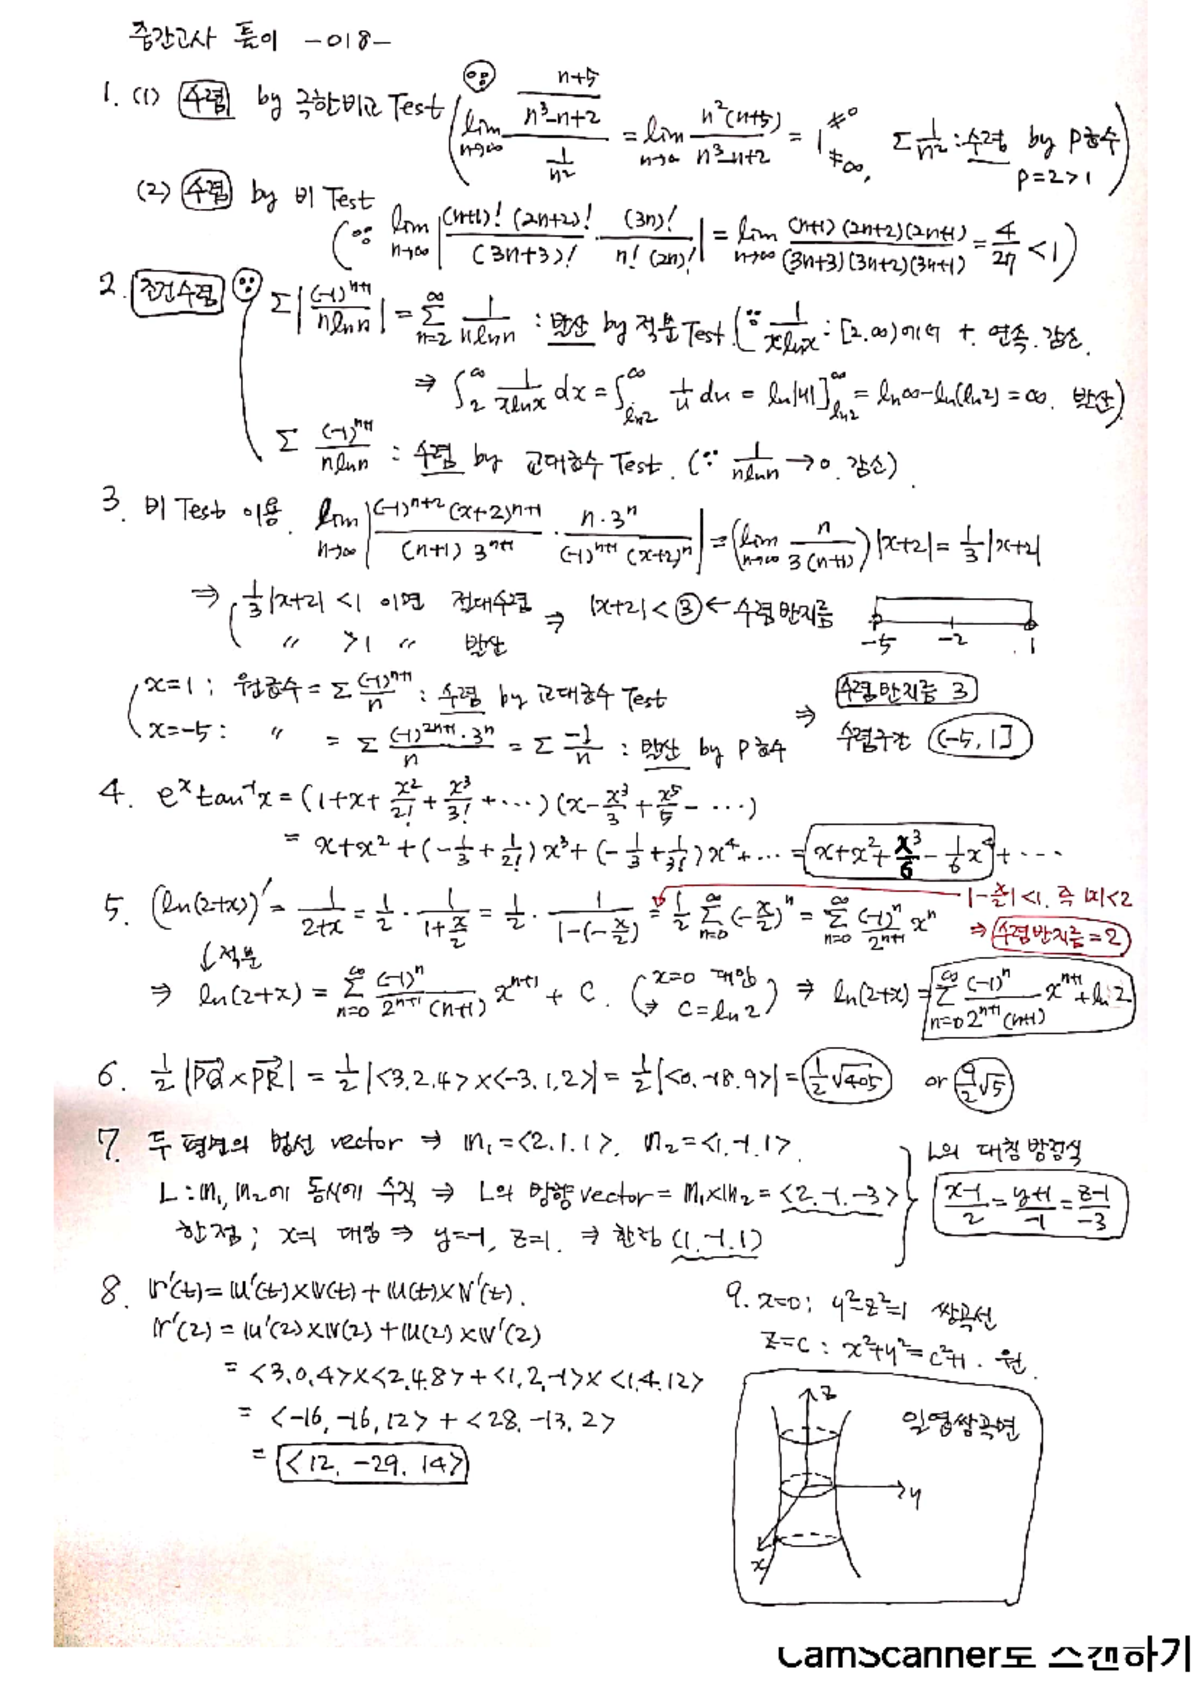 중간고사 풀이 -018-
1. (1) 수렴 by 극한비교 Test (∵ lim_{n→∞} ((n+5)/(n³-n+2))/(1/n²) = lim_{n→∞} n²(n+5)/(n³-n+2) = 1 ≠0 ≠∞, Σ 1/n² : 수렴 by P급수 P=2>1)
(2) 수렴 by 비 Test
(∵ lim_{n→∞} |(n+1)! (2n+2)!/(3n+3)! · (3n)!/(n! (2n)!)| = lim_{n→∞} (n+1)(2n+2)(2n+1)/((3n+3)(3n+2)(3n+1)) = 4/27 < 1)
2. 조건수렴 (∵ Σ|(-1)^{n+1}/(n ln n)| = Σ_{n=2}^{∞} 1/(n ln n) : 발산 by 적분 Test (∵ 1/(x ln x) : [2,∞)에서 +, 연속, 감소
⇒ ∫_2^∞ 1/(x ln x) dx = ∫_{ln2}^∞ 1/u du = ln|u|]_{ln2}^∞ = ln∞ - ln(ln2) = ∞. 발산)
Σ (-1)^{n+1}/(n ln n) : 수렴 by 교대급수 Test. (∵ 1/(n ln n) → 0. 감소)
3. 비 Test 이용. lim_{n→∞} |(-1)^{n+2}(x+2)^{n+1}/((n+1) 3^{n+1}) · n·3ⁿ/((-1)^{n+1}(x+2)ⁿ)| = (lim_{n→∞} n/(3(n+1))) |x+2| = 1/3 |x+2|
⇒ 1/3|x+2| < 1 이면 절대수렴 ⇒ |x+2| < 3 ← 수렴반지름 -5 -2 1
〃 >1 〃 발산
x=1 : 원급수 = Σ (-1)^{n+1}/n : 수렴 by 교대급수 Test ⇒ 수렴반지름 3
x=-5 : 〃 = Σ (-1)^{2n+1}·3ⁿ/n = Σ -1/n : 발산 by P급수 수렴구간 (-5, 1]
4. eˣtan⁻¹x = (1+x+x²/2!+x³/3!+···)(x-x³/3+x⁵/5-···)
= x+x²+(-1/3+1/2!)x³+(-1/3+1/3!)x⁴+··· = x+x²+x³/6-1/6x⁴+···
5. (ln(2+x))′ = 1/(2+x) = 1/2 · 1/(1+x/2) = 1/2 · 1/(1-(-x/2)) = 1/2 Σ_{n=0}^{∞} (-x/2)ⁿ = Σ_{n=0}^{∞} (-1)ⁿ/2^{n+1} xⁿ |-x/2|<1, 즉 |x|<2
↓적분 ⇒ 수렴반지름=2
⇒ ln(2+x) = Σ_{n=0}^{∞} (-1)ⁿ/(2^{n+1}(n+1)) x^{n+1} + C. (x=0 대입 ⇒ C=ln2) ⇒ ln(2+x) = Σ_{n=0}^{∞} (-1)ⁿ/(2^{n+1}(n+1)) x^{n+1} + ln2
6. 1/2 |PQ×PR| = 1/2|<3,2,4>×<-3,1,2>| = 1/2|<0,-18,9>| = 1/2√405 or 9/2√5
7. 두 평면의 법선 vector ⇒ n₁=<2,1,1>, n₂=<1,-1,1>. L의 대칭방정식
L : n₁, n₂에 동시에 수직 ⇒ L의 방향vector = n₁×n₂ = <2,-1,-3> (x-1)/2 = (y+1)/-1 = (z-1)/-3
한점 ; x=1 대입 ⇒ y=-1, z=1. ⇒ 한점 (1,-1,1)
8. r′(t)=u′(t)×v(t)+u(t)×v′(t).
r′(2)=u′(2)×v(2)+u(2)×v′(2)
= <3,0,4>×<2,4,8>+<1,2,-1>×<1,4,12>
= <-16,-16,12> + <28,-13,2>
= <12, -29, 14>
9. x=0 : y²-z²=1 쌍곡선
z=c : x²+y²=c²+1. 원.
z
일엽쌍곡면
y
x
CamScanner로 스캔하기